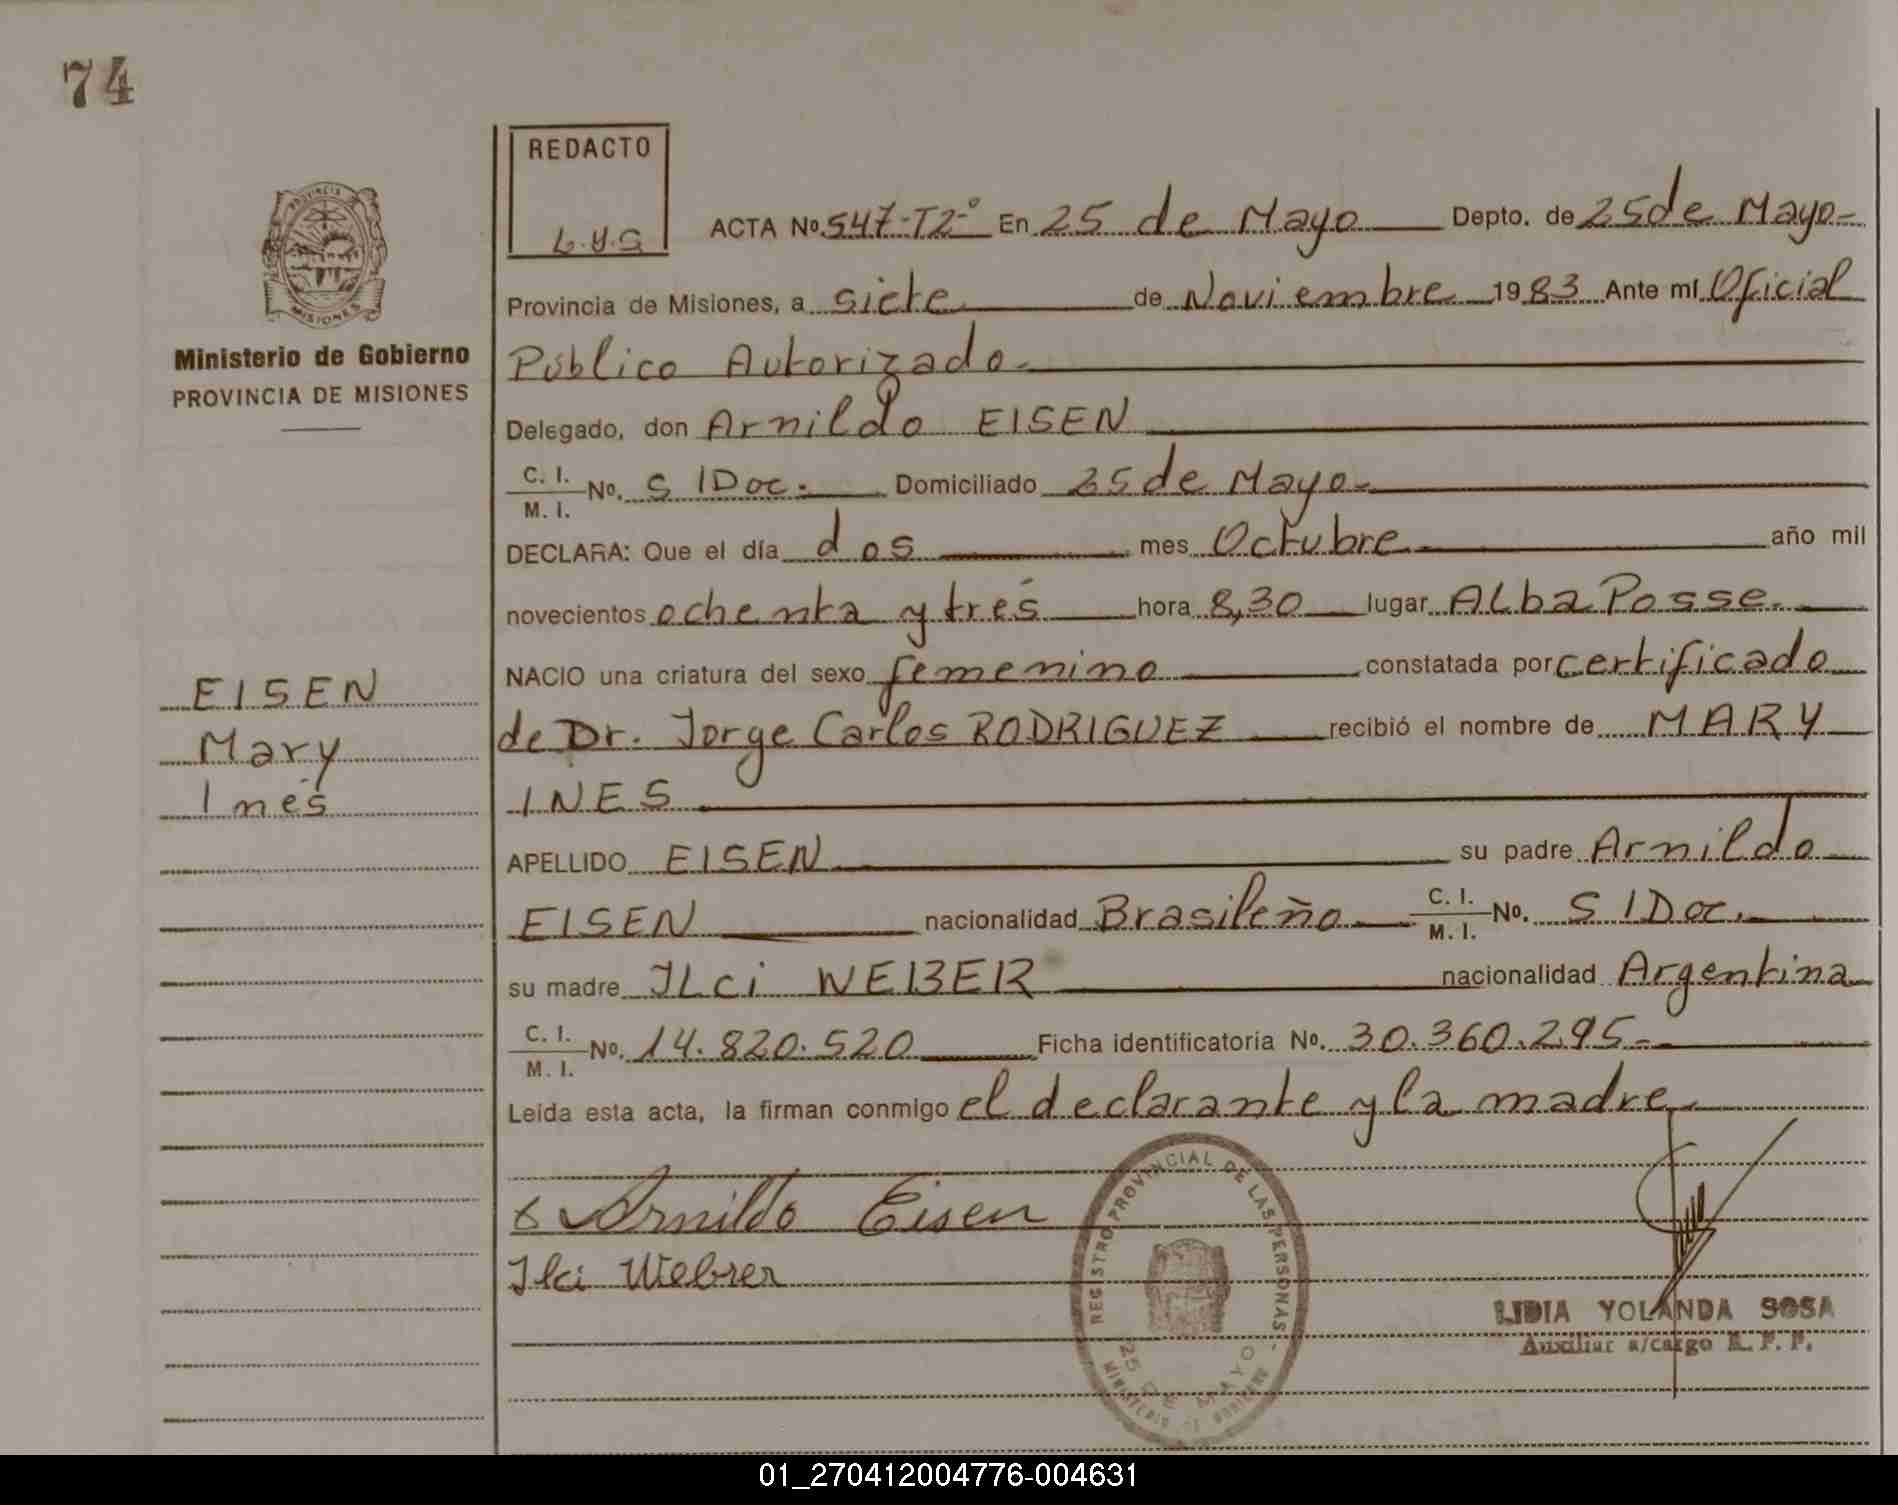 74
REDACTO
L.Y.S
ACTA Nº 547-T2-º En 25 de Mayo Depto. de 25 de Mayo-
PROVINCIA
MISIONES
Provincia de Misiones, a siete de Noviembre 1983 Ante mí Oficial
Ministerio de Gobierno
PROVINCIA DE MISIONES
Público Autorizado-
Delegado, don Arnildo EISEN
C. I.
M. I. No. S/Doc. Domiciliado 25 de Mayo-
DECLARA: Que el día dos mes Octubre año mil
novecientos ochenta y trés hora 8,30 lugar Alba Posse.
NACIO una criatura del sexo femenino constatada por certificado
EISEN
Mary
Inés
de Dr. Jorge Carlos RODRIGUEZ recibió el nombre de MARY
INES
APELLIDO EISEN su padre Arnildo
EISEN nacionalidad Brasileño C. I.
M. I. No. S/Doc.
su madre ILci WEBER nacionalidad Argentina
C. I.
M. I. No. 14.820.520 Ficha identificatoria No. 30.360.295-
Leida esta acta, la firman conmigo el declarante y la madre
Arnildo Eisen
Ilci Webrer
REGISTRO PROVINCIAL DE LAS PERSONAS-
25 DE MAYO
MINISTERIO DE GOBIERNO
LIDIA YOLANDA SOSA
Auxiliar a/cargo R. P. P.
01_270412004776-004631